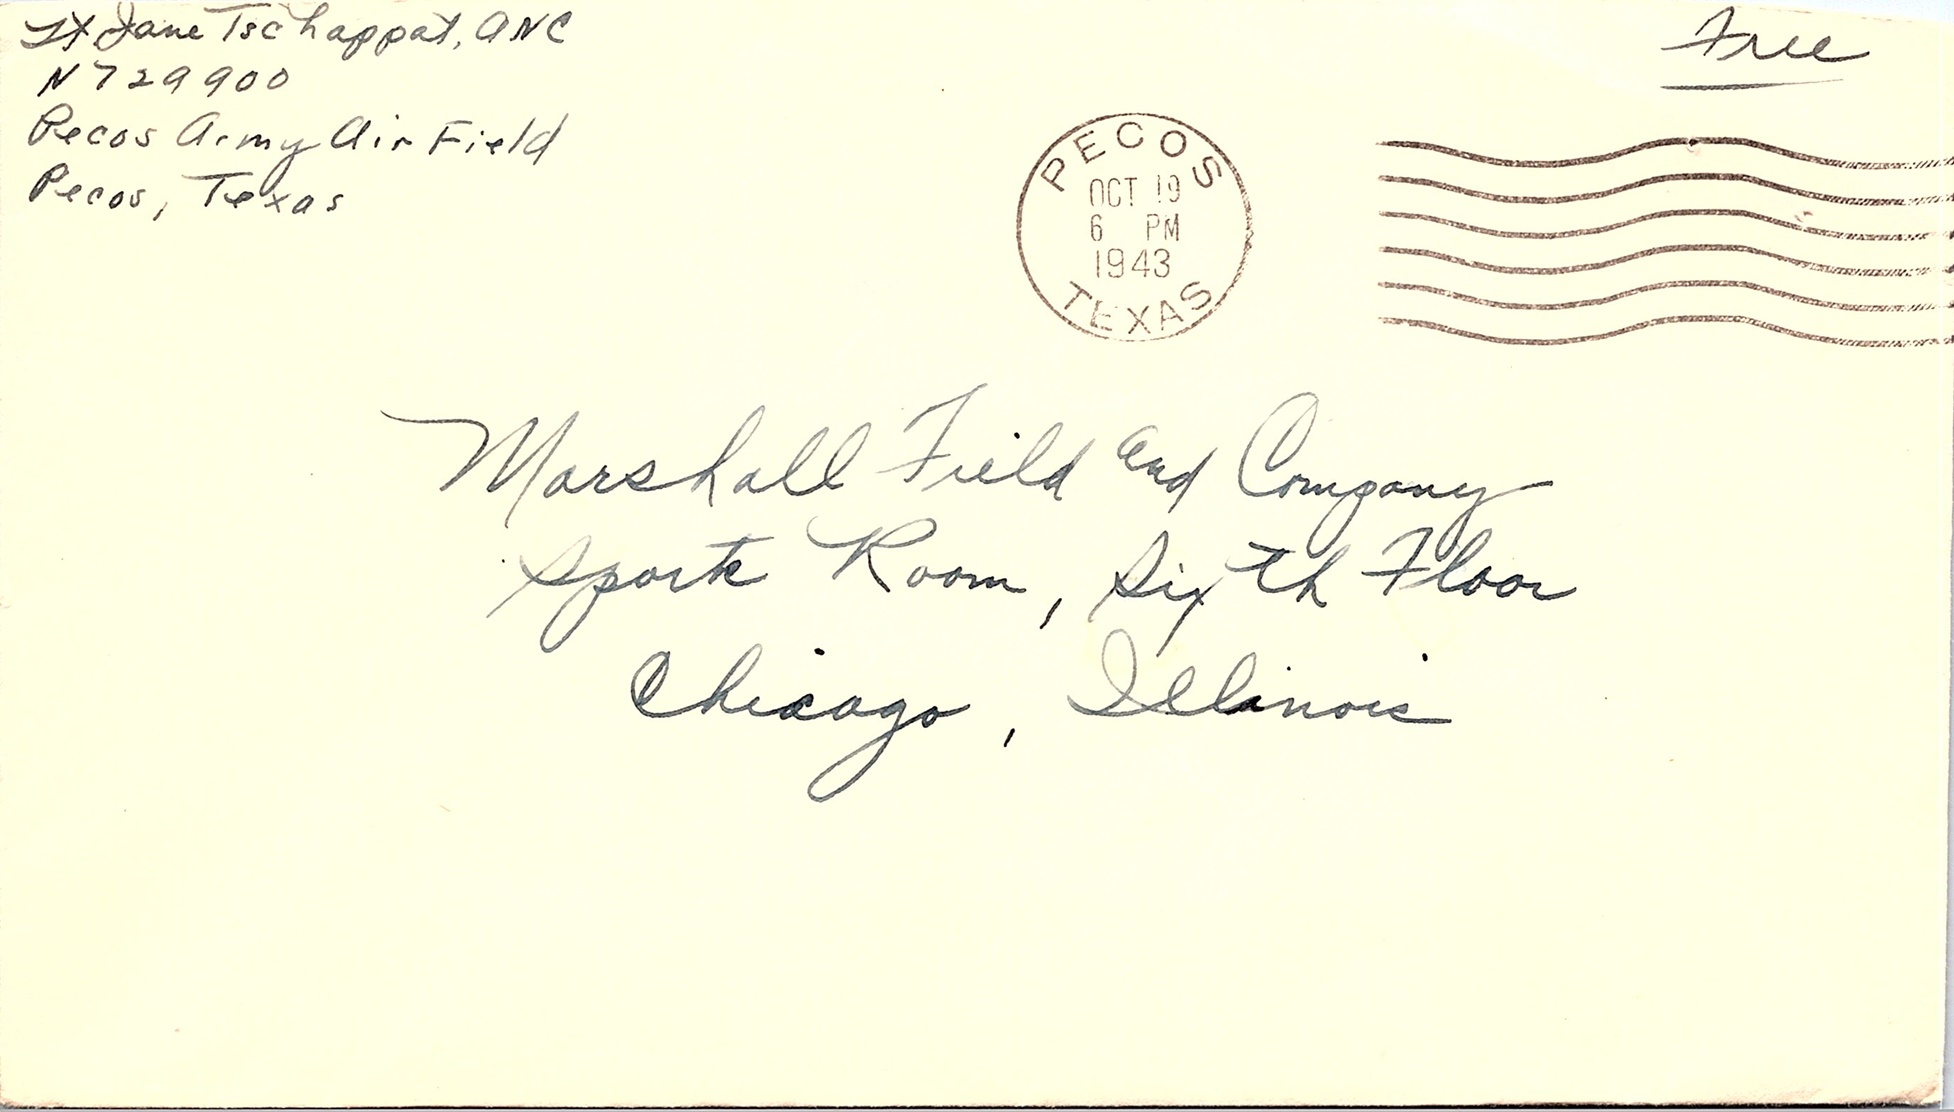 Lt Jane Tschappat, ANC
N729900
Pecos Army Air Field
Pecos, Texas
Free
PECOS
OCT 19
6 PM
1943
TEXAS
Marshall Field and Company
Sports Room, Sixth Floor
Chicago, Illinois